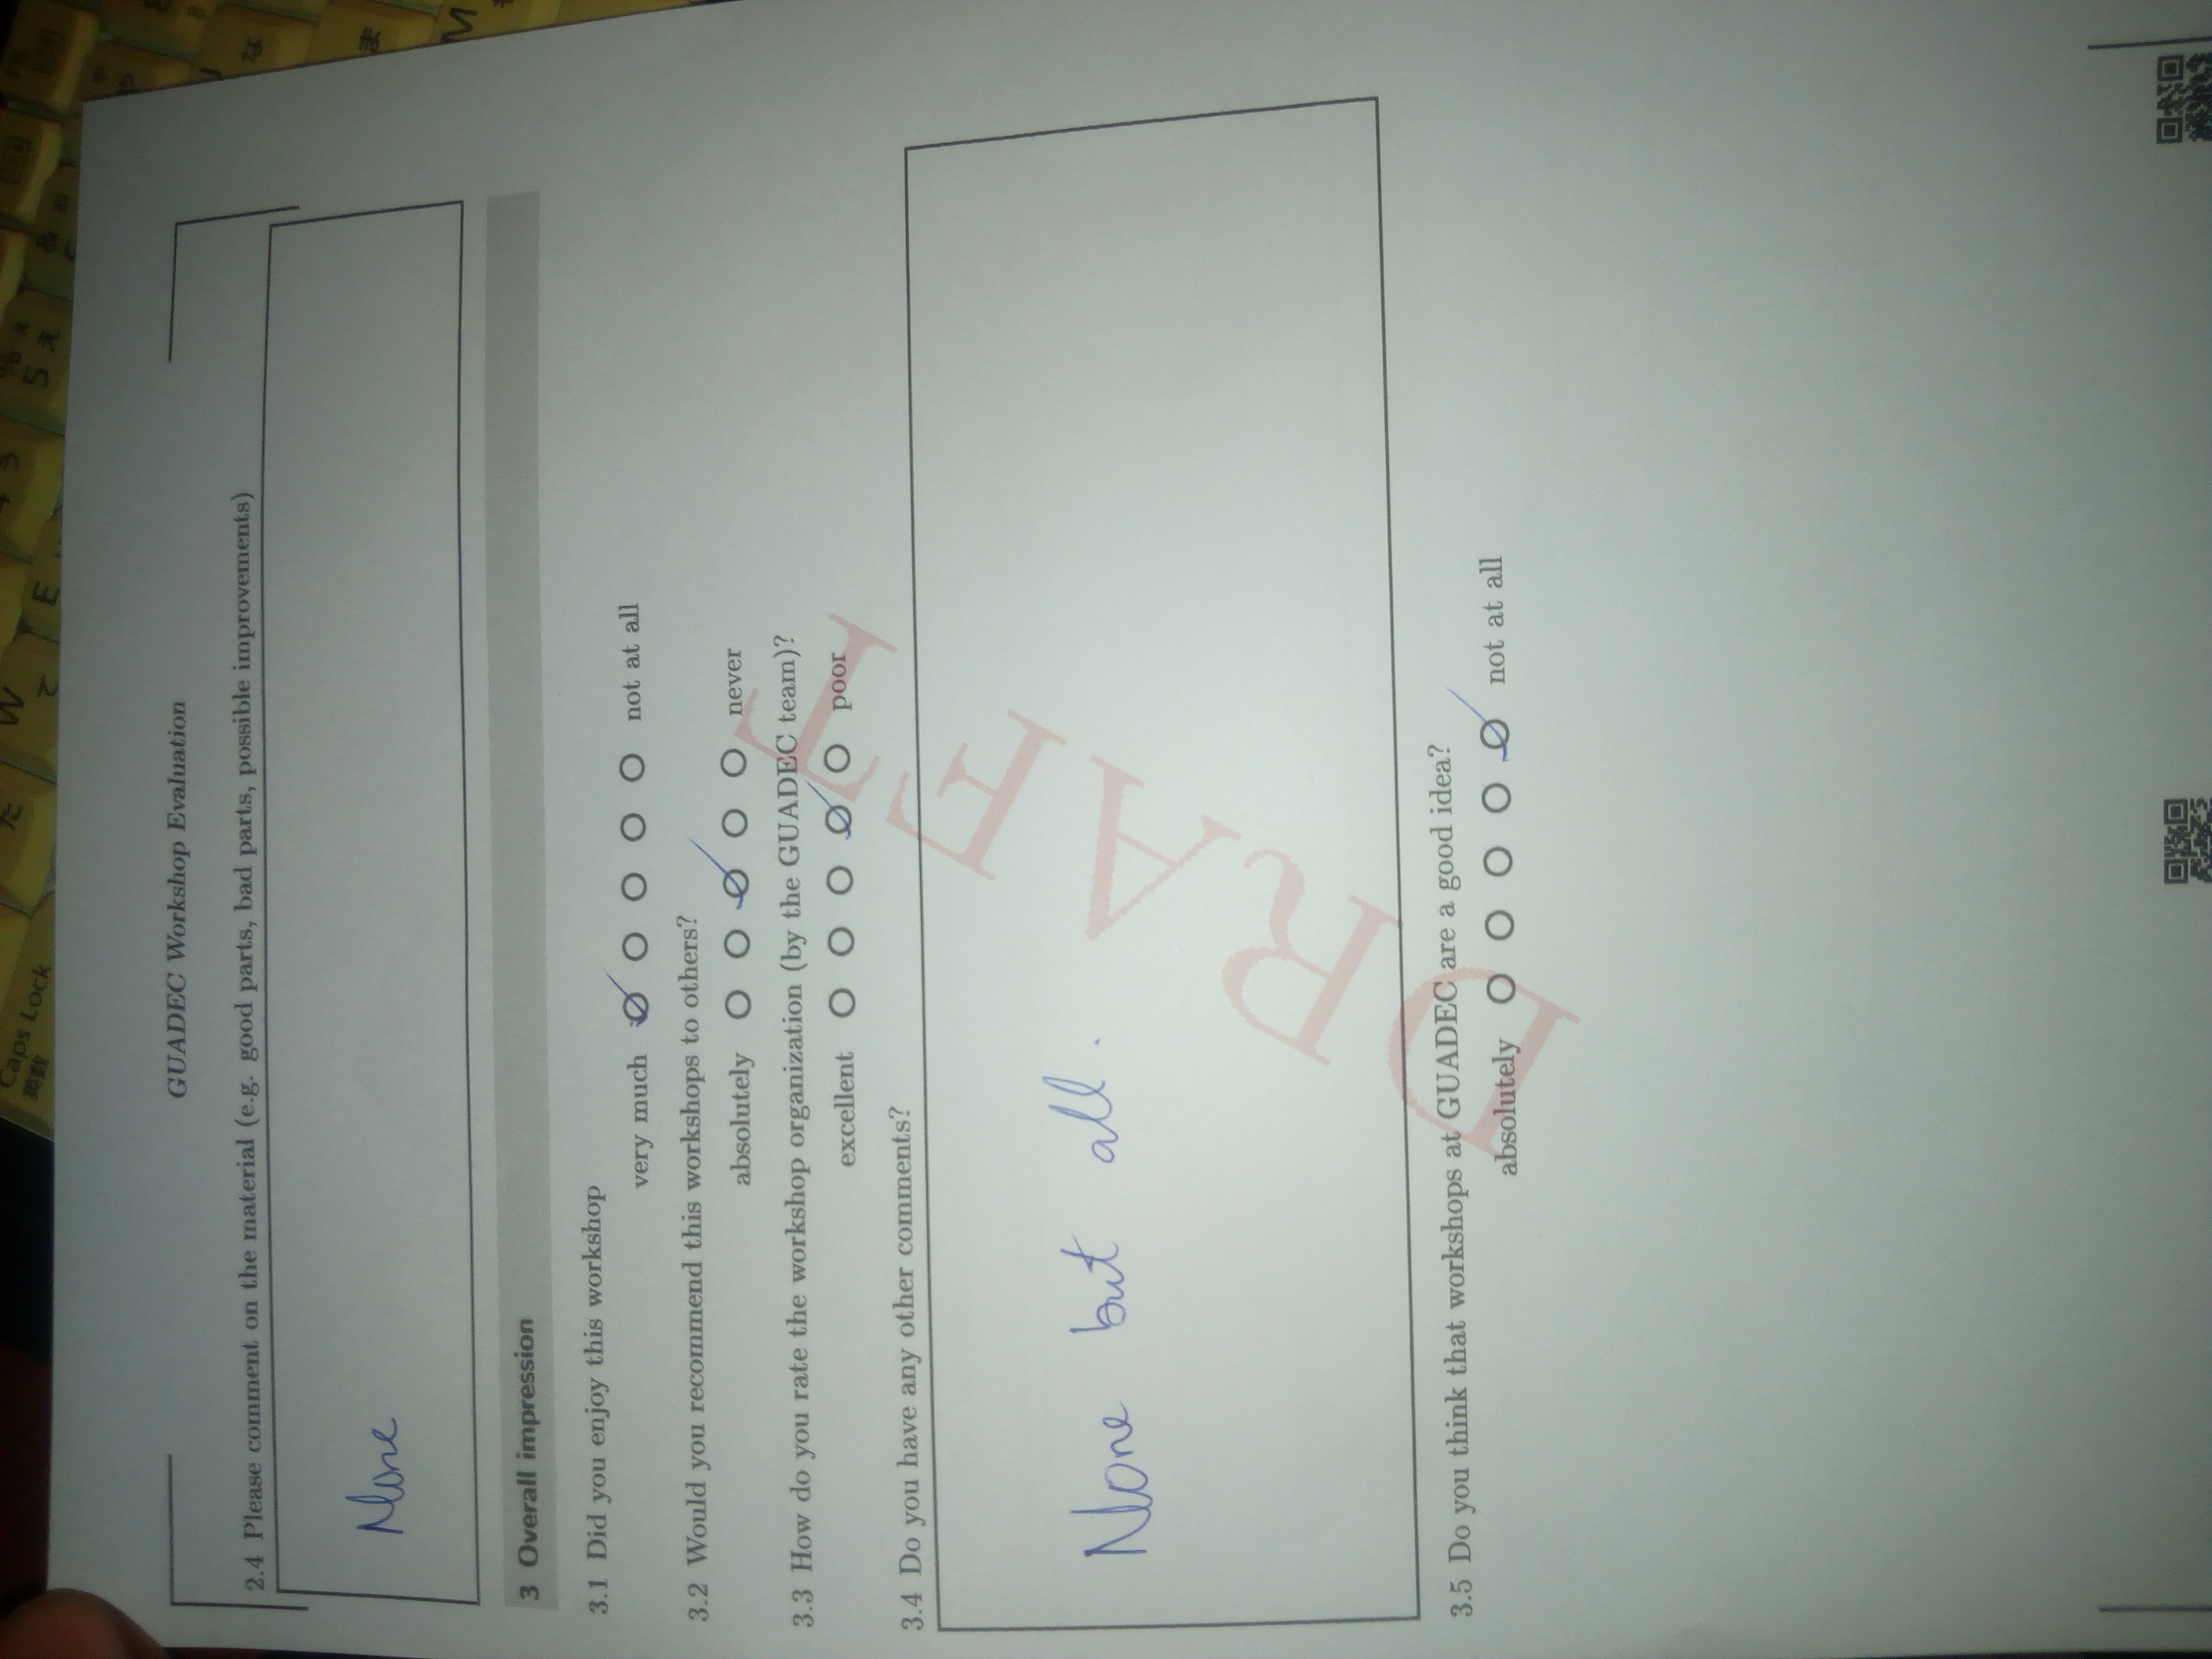 Caps Lock
英数
た
W
て
E
う
%
5
え
な
ま
M
GUADEC Workshop Evaluation
2.4 Please comment on the material (e.g. good parts, bad parts, possible improvements)
None
3 Overall impression
3.1 Did you enjoy this workshop
very much not at all
3.2 Would you recommend this workshops to others?
absolutely never
3.3 How do you rate the workshop organization (by the GUADEC team)?
excellent poor
3.4 Do you have any other comments?
None but all.
DRAFT
3.5 Do you think that workshops at GUADEC are a good idea?
absolutely not at all